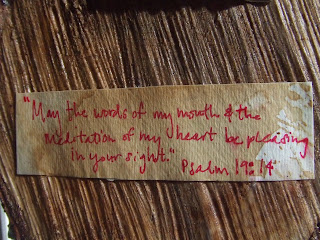 "May the words of my mouth & the
meditation of my heart be pleasing
in your sight." Psalm 19:14